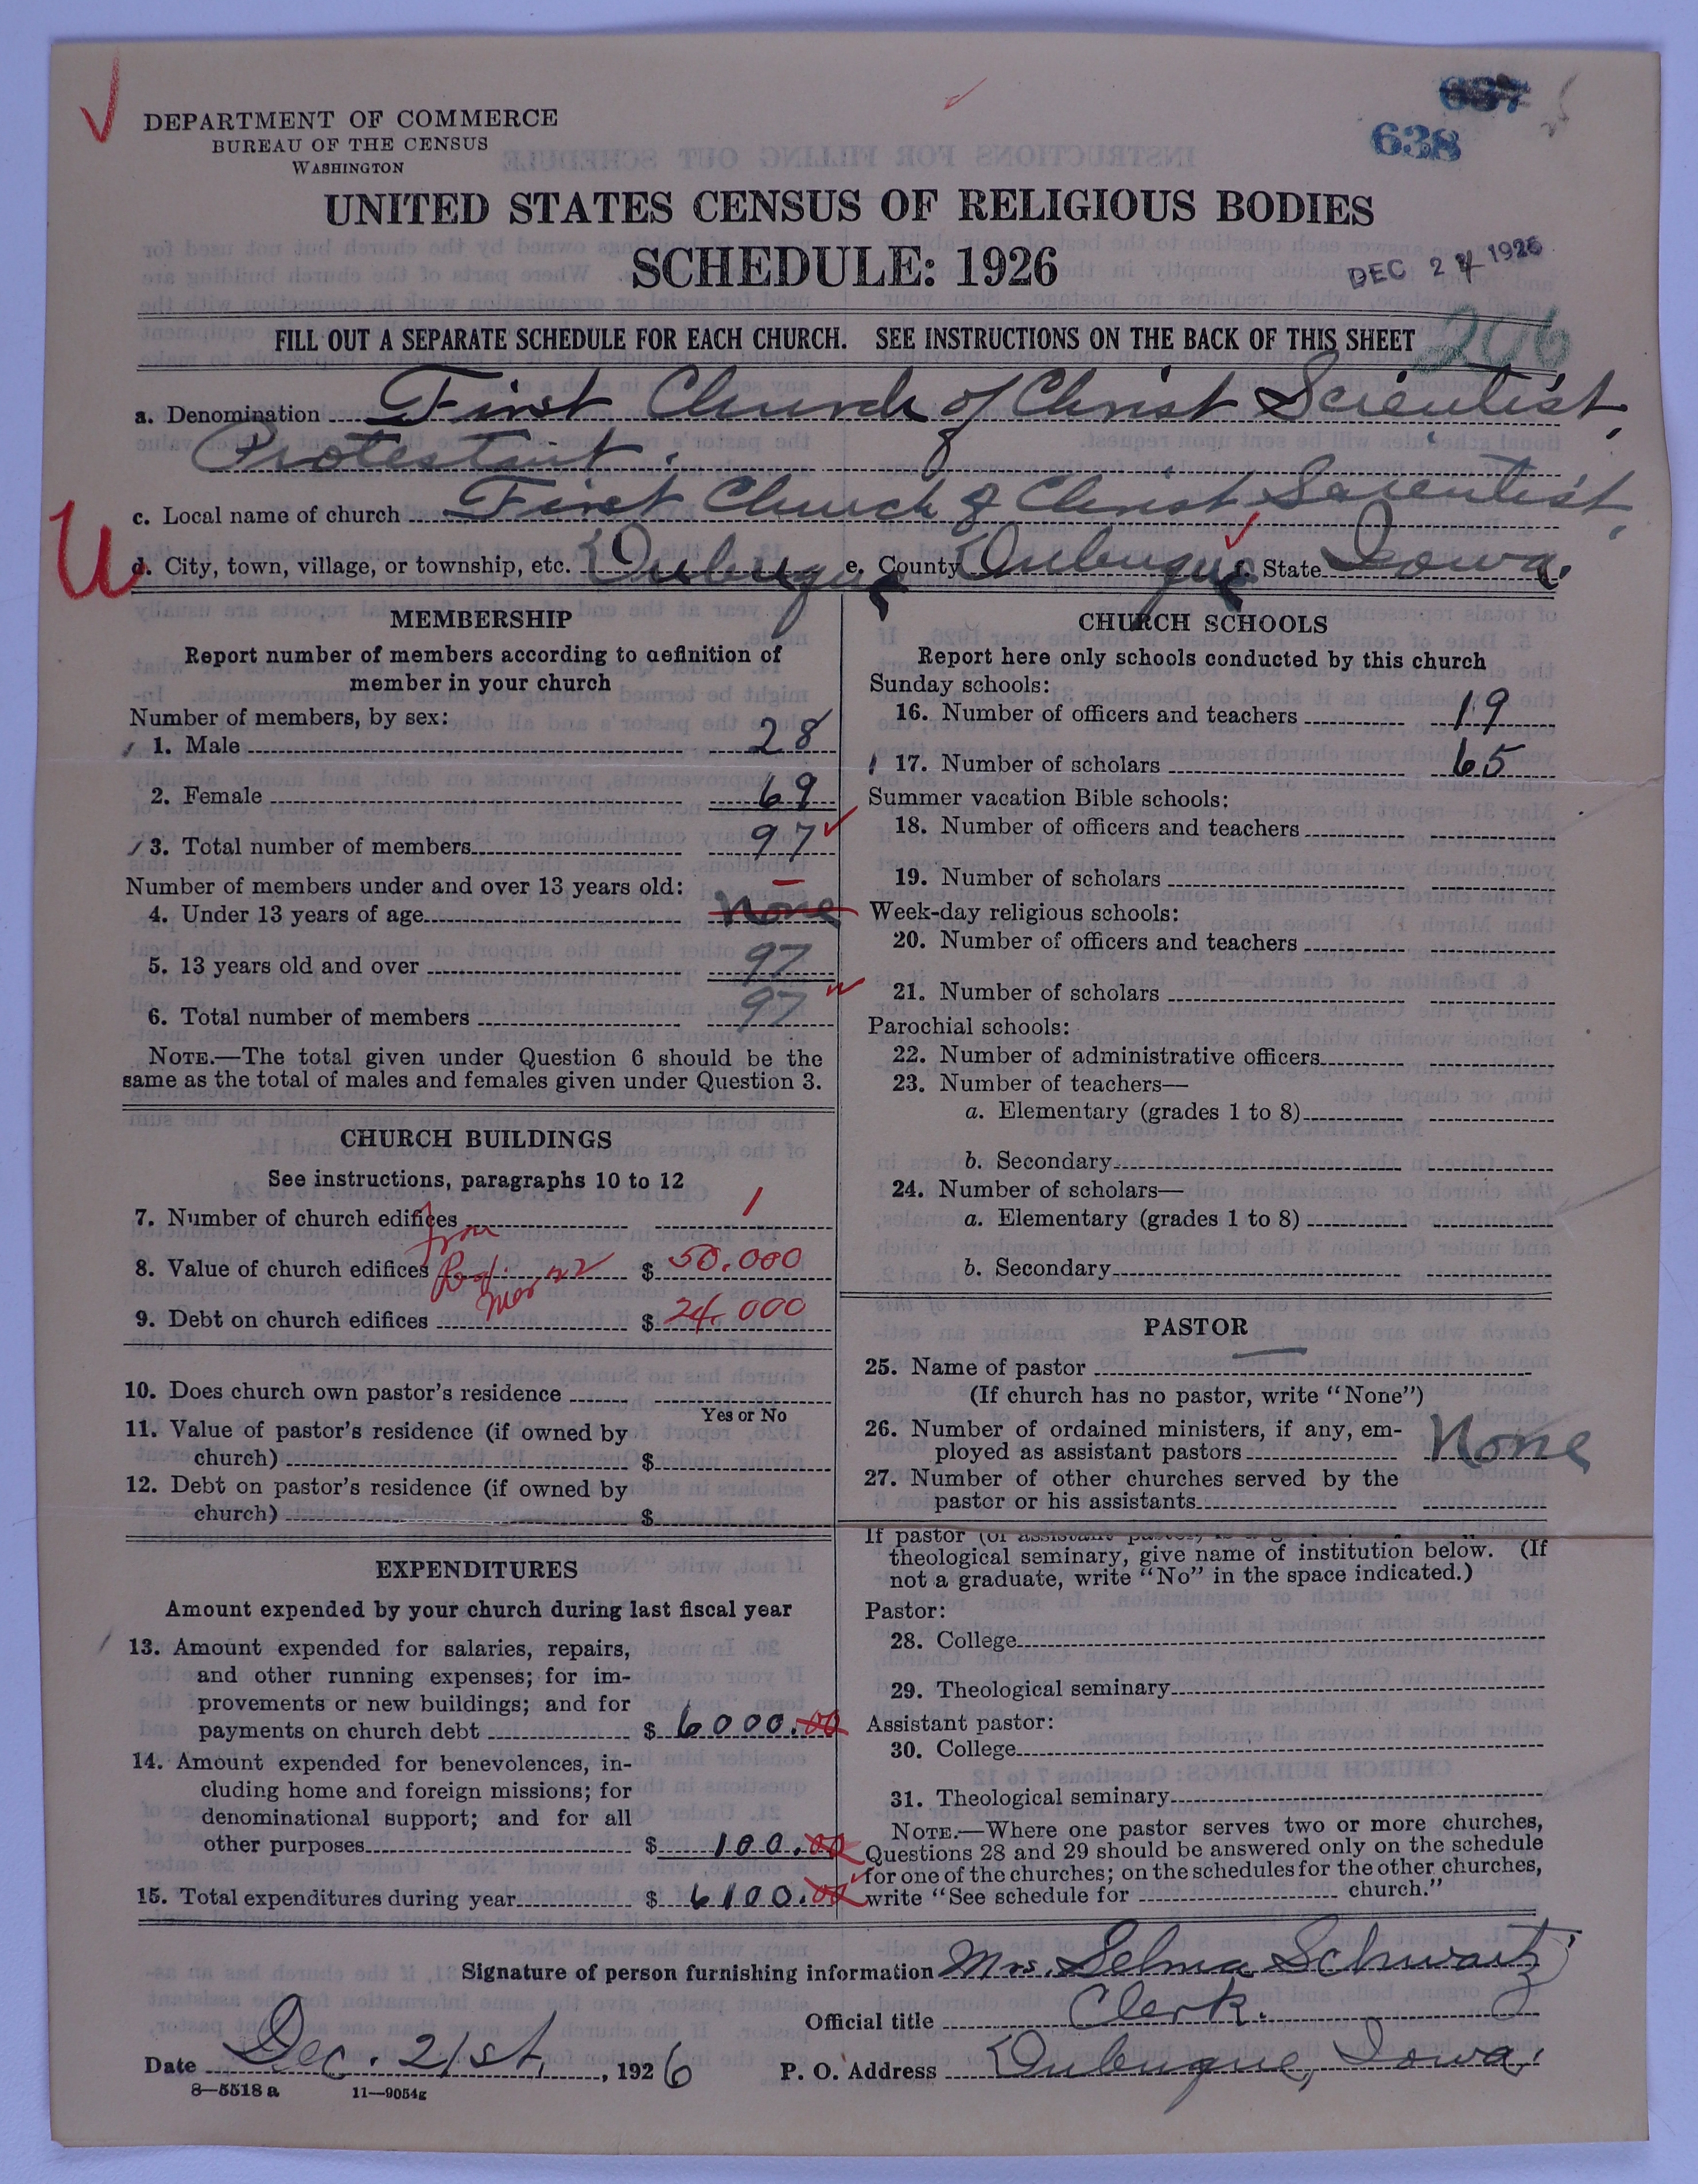 DEPARTMENT OF COMMERCE
BUREAU OF THE CENSUS
WASHINGTON
638
UNITED STATES CENSUS OF RELIGIOUS BODIES
SCHEDULE: 1926
DEC 27 1926
FILL OUT A SEPARATE SCHEDULE FOR EACH CHURCH. SEE INSTRUCTIONS ON THE BACK OF THIS SHEET
206
a. Denomination First Church of Christ Scientist,
Protestant.
c. Local name of church First Church of Christ Scientist,
U
d. City, town, village, or township, etc. Dubuque e. County Dubuque f. State Iowa.
MEMBERSHIP
Report number of members according to definition of
member in your church
Number of members, by sex:
1. Male 28
2. Female 69
3. Total number of members 97
Number of members under and over 13 years old:
4. Under 13 years of age None
5. 13 years old and over 97
6. Total number of members 97
NOTE.—The total given under Question 6 should be the
same as the total of males and females given under Question 3.
CHURCH BUILDINGS
See instructions, paragraphs 10 to 12
7. Number of church edifices 1
from
8. Value of church edifices $ 50,000
9. Debt on church edifices $ 24,000
10. Does church own pastor's residence
Yes or No
11. Value of pastor's residence (if owned by
church) $
12. Debt on pastor's residence (if owned by
church) $
EXPENDITURES
Amount expended by your church during last fiscal year
13. Amount expended for salaries, repairs,
and other running expenses; for im-
provements or new buildings; and for
payments on church debt $ 6000.00
14. Amount expended for benevolences, in-
cluding home and foreign missions; for
denominational support; and for all
other purposes $ 100.00
15. Total expenditures during year $ 6100.00
CHURCH SCHOOLS
Report here only schools conducted by this church
Sunday schools:
16. Number of officers and teachers 19
17. Number of scholars 65
Summer vacation Bible schools:
18. Number of officers and teachers
19. Number of scholars
Week-day religious schools:
20. Number of officers and teachers
21. Number of scholars
Parochial schools:
22. Number of administrative officers
23. Number of teachers—
a. Elementary (grades 1 to 8)
b. Secondary
24. Number of scholars—
a. Elementary (grades 1 to 8)
b. Secondary
PASTOR
25. Name of pastor
(If church has no pastor, write "None")
26. Number of ordained ministers, if any, em-
ployed as assistant pastors None
27. Number of other churches served by the
pastor or his assistants
If pastor (or assistant pastor) is a
theological seminary, give name of institution below. (If
not a graduate, write "No" in the space indicated.)
Pastor:
28. College
29. Theological seminary
Assistant pastor:
30. College
31. Theological seminary
NOTE.—Where one pastor serves two or more churches,
Questions 28 and 29 should be answered only on the schedule
for one of the churches; on the schedules for the other churches,
write "See schedule for church."
Signature of person furnishing information Mrs. Selma Schwartz
Official title Clerk.
Date Dec. 21st, 1926 P. O. Address Dubuque, Iowa.
8—5518 a 11—9054g